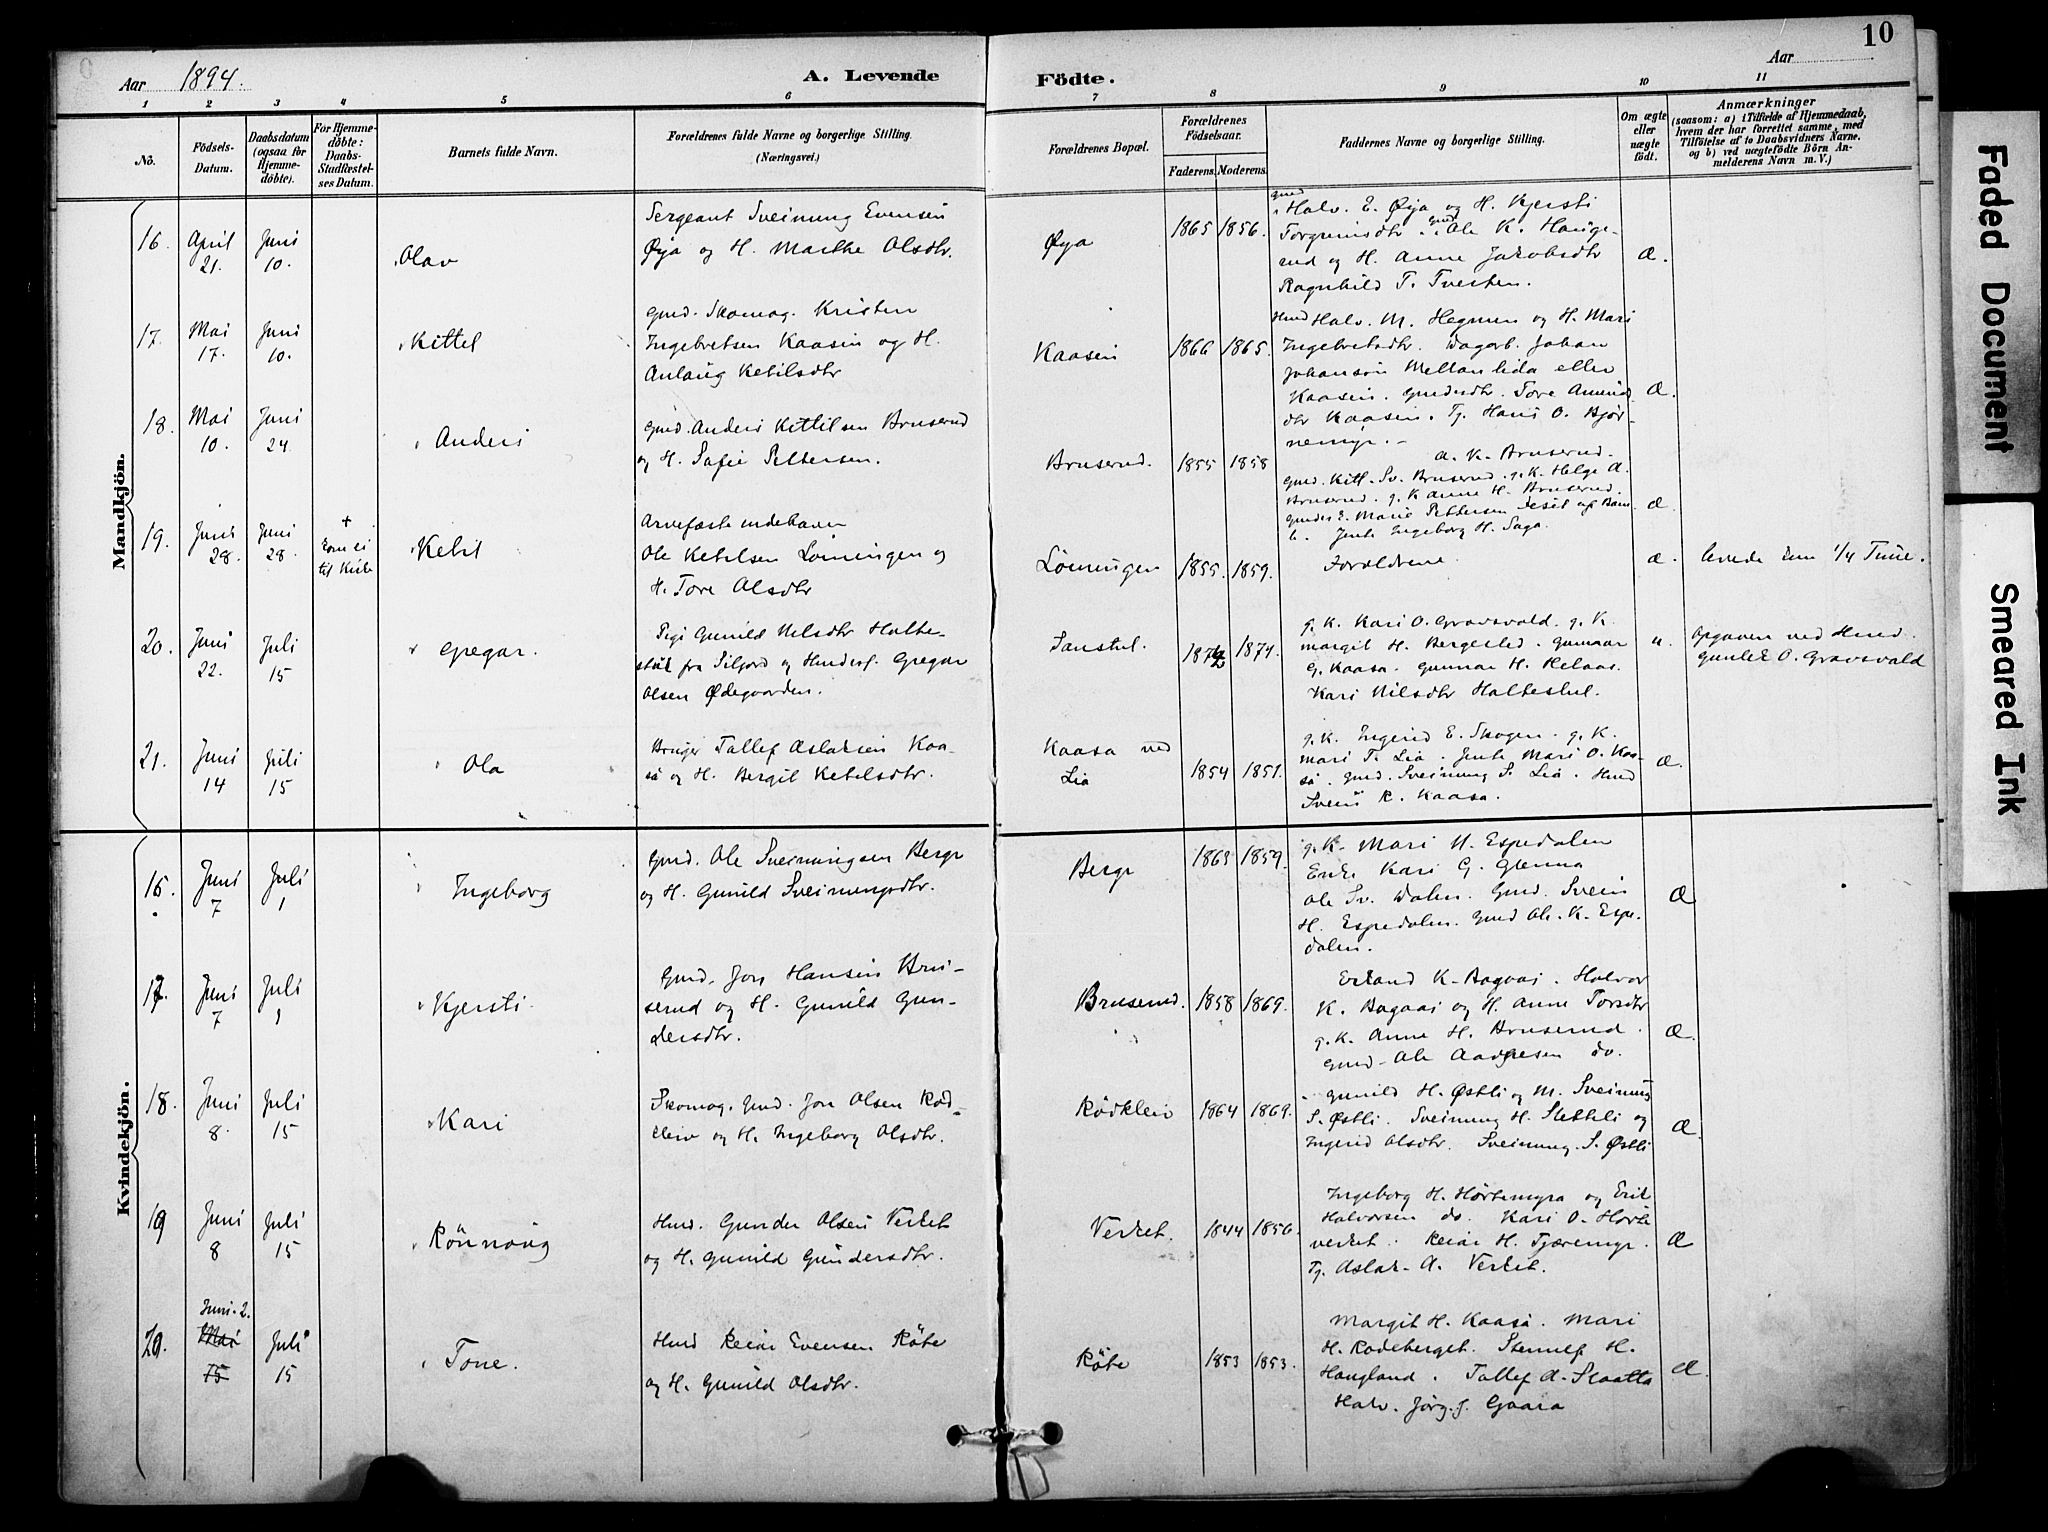 10
Aar 1894.
A. Levende Födte.
Aar
1 2 3 4 5 6 7 8 9 10 11
No.
Födsels-Datum.
Daabsdatum (ogsaa for Hjemme-döbte).
For Hjemme-döbte: Daabs-Stadfæstel-ses Datum.
Barnets fulde Navn.
Forældrenes fulde Navne og borgerlige Stilling.
(Næringsvei.)
Forældrenes Bopæl.
Forældrenes Födselsaar.
Faderens. Moderens.
Faddernes Navne og borgerlige Stilling.
Om ægte eller uægte födt.
Anmærkninger
(saasom: a) i Tilfælde af Hjemmedaab, hvem der har forrettet samme, med Tilföielse af to Daabsvidners Navne. og b) ved uægtefödte Börn An-melderens Navn m. V.)
Mandkjön.
16. April 21. Juni 10. Olav
Sergeant Sveinung Evensen
Øya og H. Marthe Olsdtr.
Øya 1865 1856.
gmd Halv. E. Øya og H. Kjersti
Torgrimsdtr. gmd Ole K. Hauge-
rud og H. Anne Jakobsdtr
Ragnhild T. Tveiten.
Æ.
17. Mai 17. Juni 10. Kittel
Gmd. Skomag. Kristen
Ingebretsen Kaasen og H.
Anlaug Ketilsdtr
Kaasen 1866 1865.
Hmd Halv. M. Hegmen og H. Mari
Ingebretsdtr. Dagarb. Johan
Johansen Mellanlida eller
Kaasen. Tore
dtr Kaasen. Tj. Hans O. Bjør-
nemyr.
Æ.
18. Mai 10. Juni 24. Anders
Gmd. Anders Kittilsen Bruserud
og H. Sofie Pettersen.
Bruserud. 1855 1858
A. K. Bruserud.
Gmd. Kitt. Sv. Bruserud. g. K. Helge A.
Bruserud. g. K Anne H. Bruserud.
Marie Pettersen
Jente Ingeborg H. Saga.
Æ.
19. Juni 28. Juni 28. + kom ei til Kirke Ketil
Arvefæsteindehaver
Ole Ketilsen Lönningen og
H. Tore Olsdtr
Lönningen 1855. 1859.
Forældrene.
Æ. levede kun 1/4 Time.
20. Juni 22. Juli 15 Gregar.
Pige Gunild Nilsdtr Holte-
stul fra Siljord og Gregar
Olsen Ødegaarden.
1874.
g. K. Kari O. Gravsvald. g. K.
Margit H. Bergestad. Gunnar
G. Kaasa. Gunnar H. Helaas.
Kari Nilsdtr Holtestul.
u. Opgaven ved Hmd.
O. Gravsvald
21. Juni 14 Juli 15 Ola
Bruger Tallef Aslaksen Kaa-
sa og H. Bergit Ketilsdtr.
Kaasa ved
Lia 1854 1851.
g. K. Ingerid E. Skogen. g. K.
Mari T. Lia. Jente Mari O. Kaa-
sa. Gmd. Sveinung S. Lia. Hmd
Svein K. Kaasa.
Æ.
Kvindekjön.
16. Juni 7 Juli 1 Ingeborg
Gmd. Ole Sveinungsen Berge
og H. Gunild Sveinungsdtr.
Berge 1863 1859.
g. K. Mari H. Espedalen
Enke Kari G. Glenna
Ole Sv. Dalen. Gmd. Svein
H. Espedalen. Gmd Ole K. Espe-
dalen.
Æ
17. Juni 7 Juli 1 Kjersti
Gmd. Jon Hansen Bru-
serud og H. Gunild Gun-
dersdtr.
Bruserud. 1858 1869.
Erland K. Bagaas. Halvor
K. Bagaas og H. Anne Torsdtr
g. K. Anne H. Bruserud.
Gmd. Ole Aadnesen do.
Æ.
18. Juni 8. Juli 15 Kari
Skomag. Gmd. Jon Olsen Rød-
kleiv og H. Ingeborg Olsdtr.
Rödkleiv 1864 1869.
Gunild H. Østli og M. Sveinung
S. Østli. Sveinung H. Sletteli og
Ingerid Olsdtr. Sveinung S. Østli
Æ.
19 Juni 8 Juli 15 Rönnaug
Hmd. Gunder Olsen Verket
og H. Gunild Gundersdtr.
Verket. 1844 1856.
Ingeborg H. Hörtemyra og Erik
Halvorsen do. Kari O. Hörte
verket. Reiar H. Tjæremyr.
Tj. Aslak A. Verket.
Æ
20. Juni. 2. Mai 15 Juli 15 Tone.
Hmd Reiar Evensen Röte
og H. Gunild Olsdtr.
Röte 1853 1853.
Margit H. Kaasa. Mari
H. Rodeberget. H.
Haugland. Tallef A. Slaatta
Halv. Jörg. J. Gaara
Æ.
Faded Document
Smeared Ink